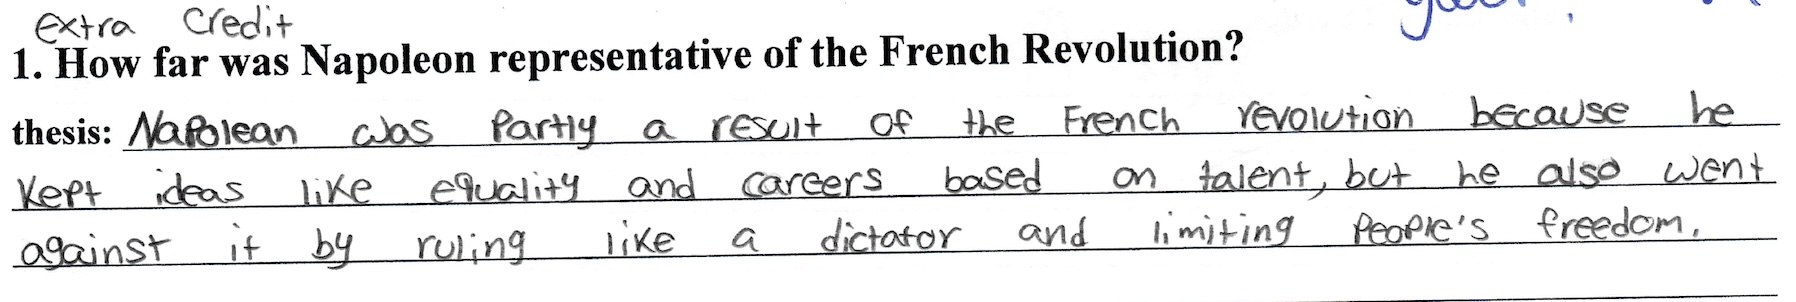 extra credit
1. How far was Napoleon representative of the French Revolution?
thesis: Napolean was partly a result of the French revolution because he
kept ideas like equality and careers based on talent, but he also went
against it by ruling like a dictator and limiting people's freedom.